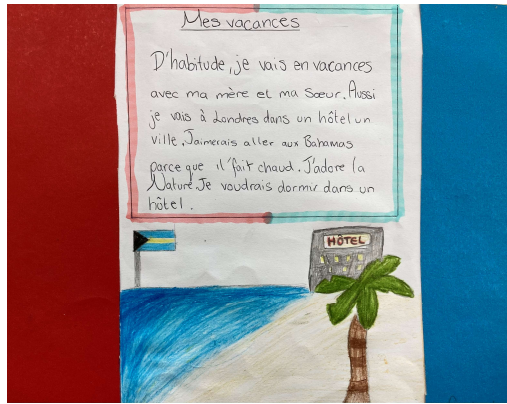 Mes vacances
D'habitude, je vais en vacances
avec ma mère et ma sœur. Aussi
je vais à Londres dans un hôtel un
ville. J'aimerais aller aux Bahamas
parce que il fait chaud. J'adore la
Nature. Je voudrais dormir dans un
hôtel.
HÔTEL